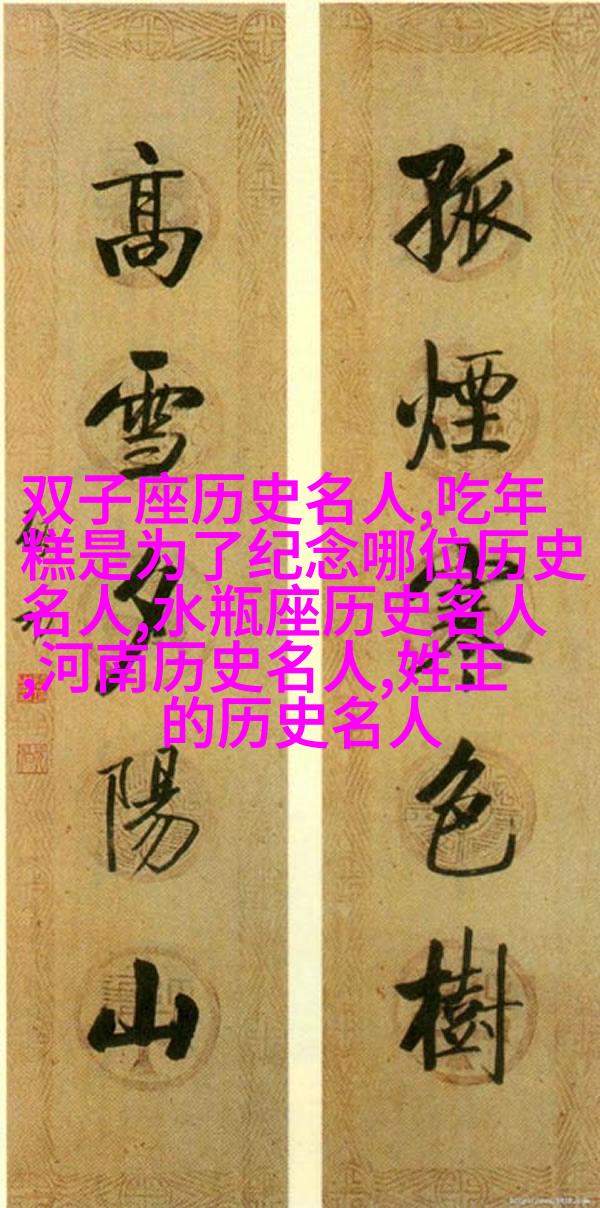 孤煙寒色樹
高雪夕陽山
双子座历史名人,吃年
糕是为了纪念哪位历史
名人,水瓶座历史名人
,河南历史名人,姓王
的历史名人